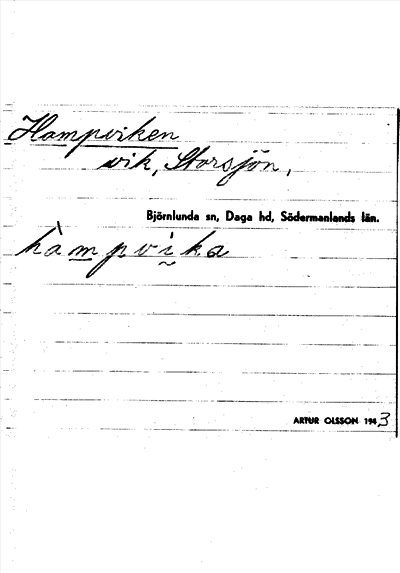 Hampviken
vik, Storsjön,
Björnlunda sn, Daga hd, Södermanlands län.
hàmpvika
ARTUR OLSSON 1943